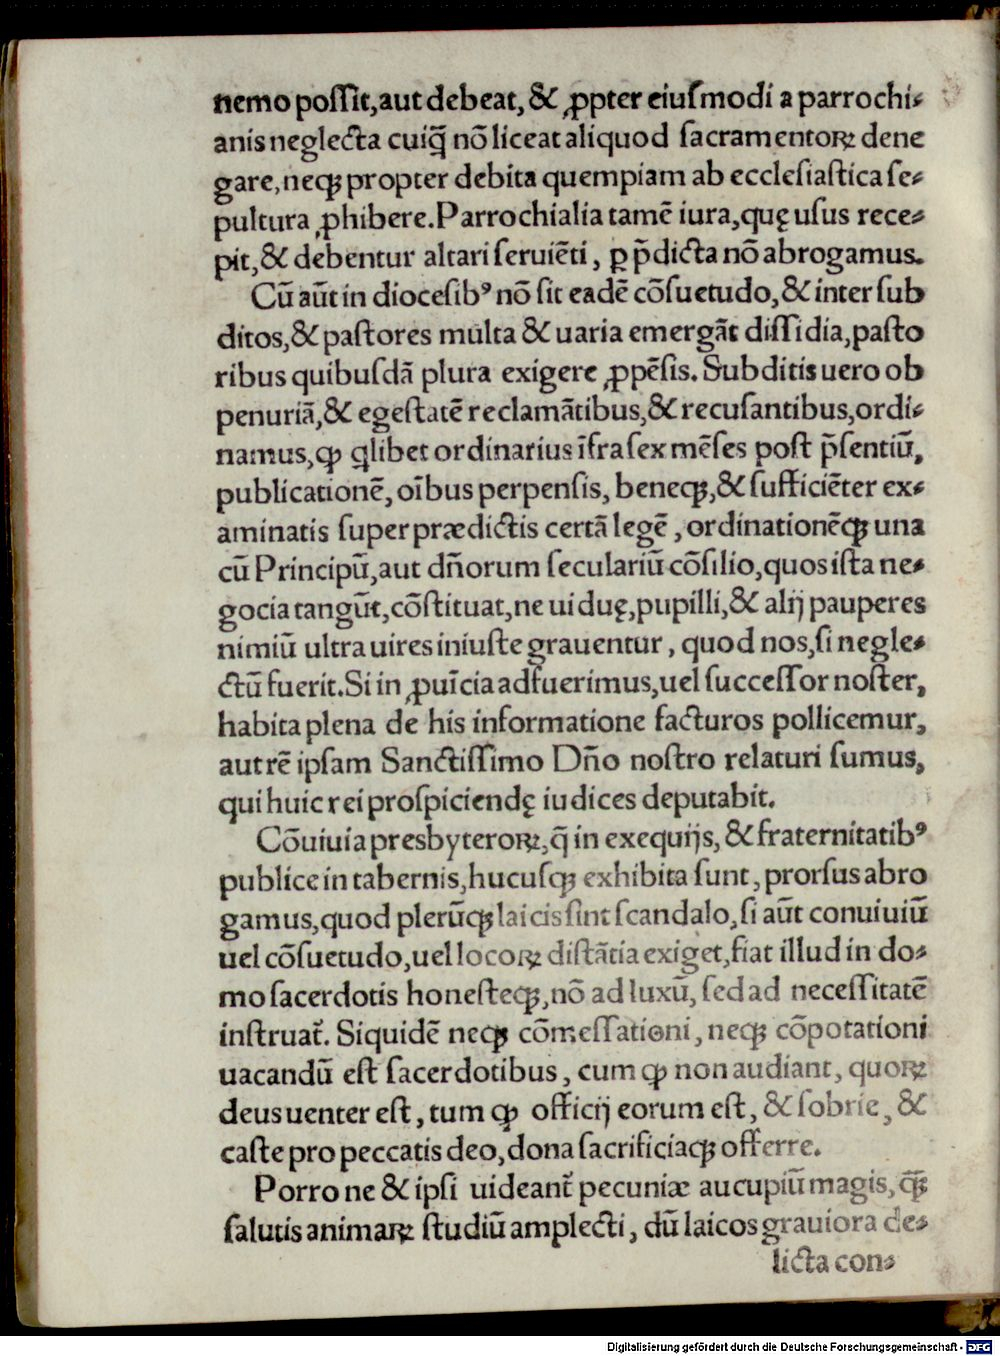 nemo poſſit, aut debeat, & ꝓpter eiuſmodi a parrochi⸗
anis neglecta cuiq̃ nõ liceat aliquod ſacramentoꝝ dene
gare, neqꝫ propter debita quempiam ab eccleſiaſtica ſe⸗
pultura ꝓhibere. Parrochialia tamẽ iura, quę uſus rece⸗
pit, & debentur altari ſeruiẽti, ꝑ p̃dicta nõ abrogamus.
Cũ aũt in dioceſibꝰ nõ ſit eadẽ cõſuetudo, & inter ſub
ditos, & paſtores multa & uaria emergãt diſſidia, paſto
ribus quibuſdã plura exigere ꝓpẽſis. Subditis uero ob
penuriã, & egeſtatẽ reclamãtibus, & recuſantibus, ordi⸗
namus, ꝙ qlibet ordinarius ĩfra ſex mẽſes poſt p̃ſentiũ,
publicationẽ, oĩbus perpenſis, beneqꝫ, & ſufficiẽter ex⸗
aminatis ſuper prædictis certã legẽ, ordinationẽqꝫ una
cũ Principũ, aut dñorum ſeculariũ cõſilio, quos iſta ne⸗
gocia tangũt, cõſtituat, ne uiduę, pupilli, & alij pauperes
nimiũ ultra uires iniuſte grauentur, quod nos, ſi negle⸗
ctũ fuerit. Si in ꝓuĩcia adfuerimus, uel ſucceſſor noſter,
habita plena de his informatione facturos pollicemur,
aut rẽ ipſam Sanctiſſimo Dño noſtro relaturi ſumus,
qui huic rei proſpiciendę iudices deputabit.
Cõuiuia presbyteroꝝ, q̃ in exequijs, & fraternitatibꝰ
publice in tabernis, hucuſqꝫ exhibita ſunt, prorſus abro
gamus, quod plerũqꝫ laicis ſint ſcandalo, ſi aũt conuiuiũ
uel cõſuetudo, uel locoꝝ diſtãtia exiget, fiat illud in do⸗
mo ſacerdotis honeſteqꝫ, nõ ad luxũ, ſed ad neceſſitatẽ
inſtruat̃. Siquidẽ neqꝫ cõmeſſationi, neqꝫ cõpotationi
uacandũ eſt ſacerdotibus, cum ꝙ non audiant, quoꝝ
deus uenter eſt, tum ꝙ officij eorum eſt, & ſobrie, &
caſte pro peccatis deo, dona ſacrificiaqꝫ offerre.
Porro ne & ipſi uideant̃ pecuniæ aucupiũ magis, q̃ꝫ
ſalutis animaꝝ ſtudiũ amplecti, dũ laicos grauiora de⸗
licta con⸗
Digitalisierung gefördert durch die Deutsche Forschungsgemeinschaft - DFG